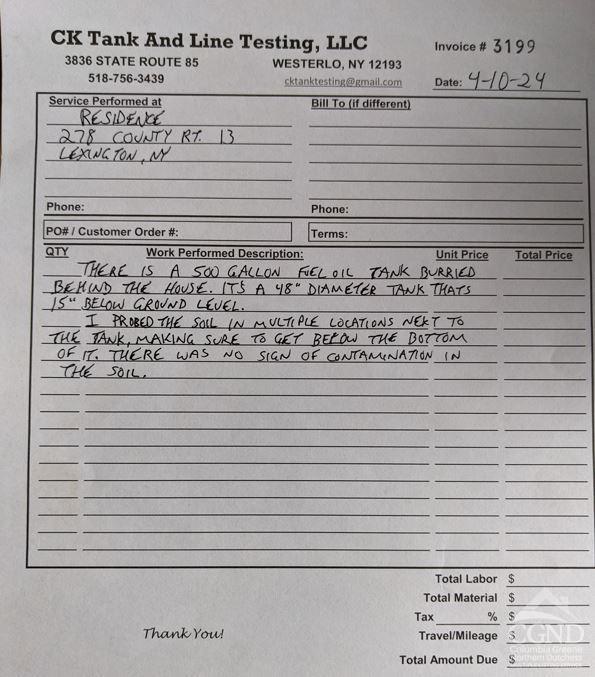 CK Tank And Line Testing, LLC
Invoice # 3199
3836 STATE ROUTE 85
WESTERLO, NY 12193
518-756-3439
cktanktesting@gmail.com
Date: 4-10-24
Service Performed at
Bill To (if different)
RESIDENCE
278 COUNTY RT. 13
LEXINGTON, NY
Phone:
Phone:
PO# / Customer Order #:
Terms:
QTY Work Performed Description: Unit Price Total Price
THERE IS A 500 GALLON FUEL OIL TANK BURRIED
BEHIND THE HOUSE. IT'S A 48" DIAMETER TANK THATS
15" BELOW GROUND LEVEL.
I PROBED THE SOIL IN MULTIPLE LOCATIONS NEXT TO
THE TANK, MAKING SURE TO GET BELOW THE BOTTOM
OF IT. THERE WAS NO SIGN OF CONTAMINATION IN
THE SOIL.
Total Labor $
Total Material $
Tax % $
Travel/Mileage $
Total Amount Due $
Thank You!
CGND
Columbia Greene
Northern Dutchess